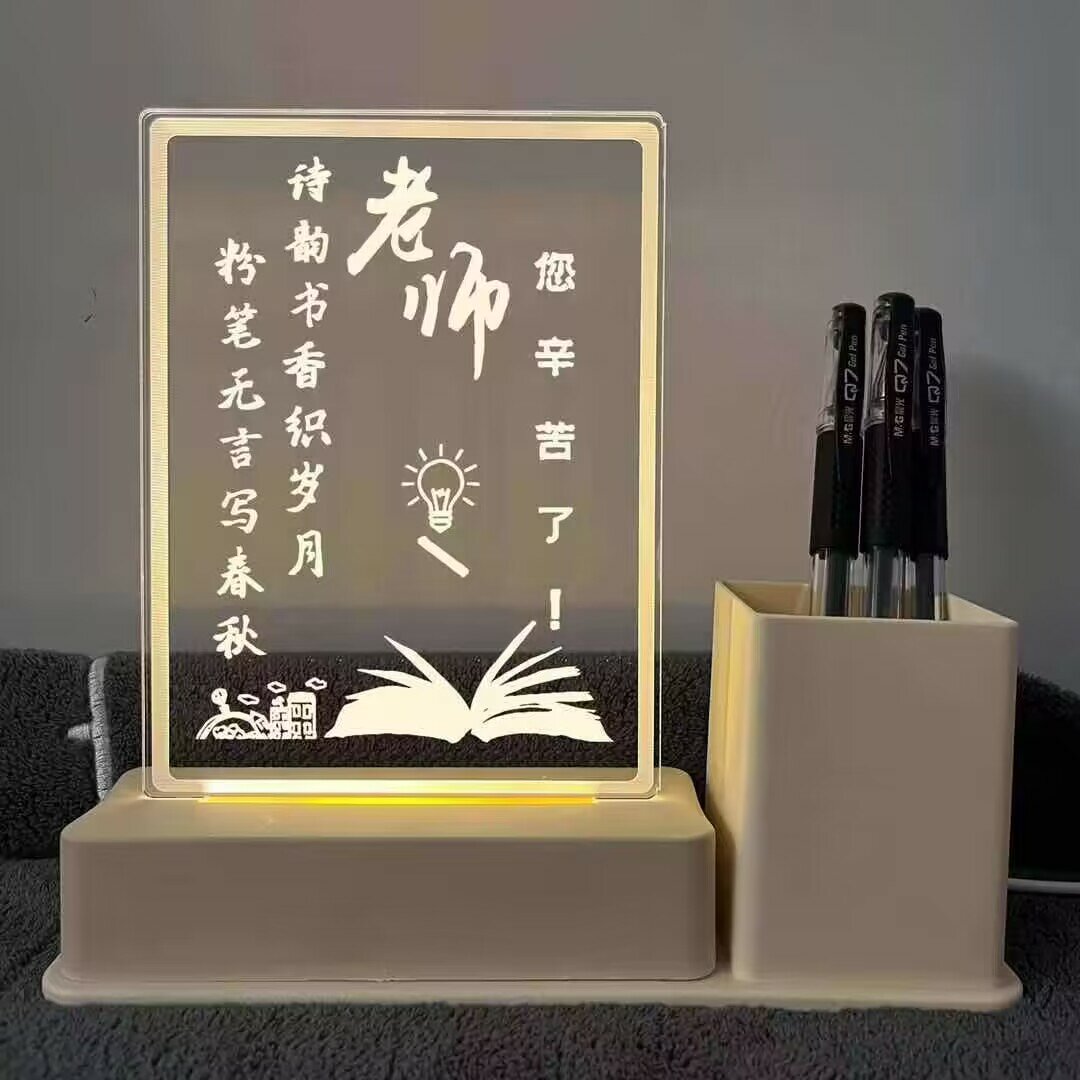 老师
您辛苦了！
诗韵书香织岁月
粉笔无言写春秋
M&G 晨光 Q7 Gel Pen
M&G 晨光 Q7 Gel Pen
M&G 晨光 Q7 Gel Pen